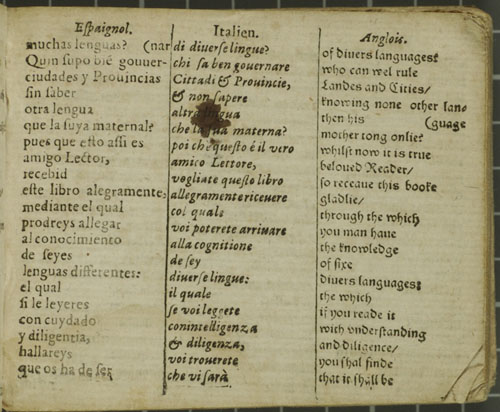 Eſpaignol.
muchas lenguas? (nar
Quin ſupo bié gouuer-
ciudades y Prouincias
ſin ſaber
otra lengua
que la ſuya maternal?
pues que eſto aſsi es
amigo Lector,
recebid
eſte libro alegramente,
mediante el qual
prodreys allegar
al conocimiento
de ſeyes
lenguas differentes:
el qual
ſi le leyeres
con cuydado
y diligentia,
hallareys
que os ha de ſer
Italien.
di diuerſe lingue?
chi ſa ben gouernare
Cittadi & Prouincie,
& non ſapere
altra lingua
che la ſua materna?
poi che queſto è il vero
amico Lettore,
vogliate queſto libro
allegramente riceuere
col quale
voi poterete arriuare
alla cognitione
de ſey
diuerſe lingue:
il quale
ſe voi leggete
con intelligenza
& diligenza,
voi trouerete
che vi ſarà
Anglois.
of diuers languages?
who can wel rule
Landes and Cities/
knowing none other lano
then his (guage
mother tong onlie?
whilſt now it is true
beloued Reader/
ſo receaue this booke
gladlie/
through the which
you man haue
the knowledge
of ſixe
diuers languages:
the which
if you reade it
with vnderſtanding
and diligence/
you ſhal finde
that it ſhall be